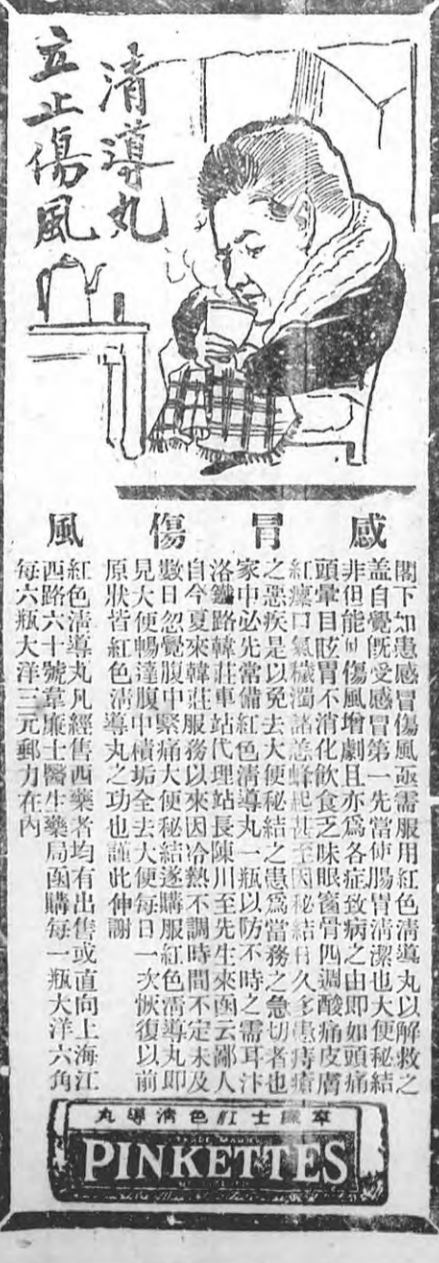 清導丸
立止傷風
感冒傷風
閣下如患感冒傷風亟需服用紅色清導丸以解救之
蓋自覺旣受感冒第一先當使腸胃清潔也大便秘結
非但能使傷風增劇且亦爲各症致病之由即如頭痛
頭暈目眩胃不消化飲食乏味眼窩骨四週酸痛皮膚
紅癳口氣穢濁諸恙蜂起甚至因秘結日久多患痔瘡
之惡疾是以免去大便秘結之患爲當務之急切者也
家中必先常備紅色清導丸一瓶以防不時之需耳汴
洛鐵路韓莊車站代理站長陳川至先生來函云鄙人
自今夏來韓莊服務以來因冷熱不調時間不定未及
數日忽覺腹中緊痛大便秘結遂購服紅色清導丸即
見大便暢達腹中積垢全去大便每日一次恢復以前
原狀皆紅色清導丸之功也謹此伸謝
紅色清導丸凡經售西藥者均有出售或直向上海江
西路六十號韋廉士醫生藥局函購每一瓶大洋六角
每六瓶大洋三元郵力在內
韋廉士紅色清導丸
TRADE MARK
PINKETTES